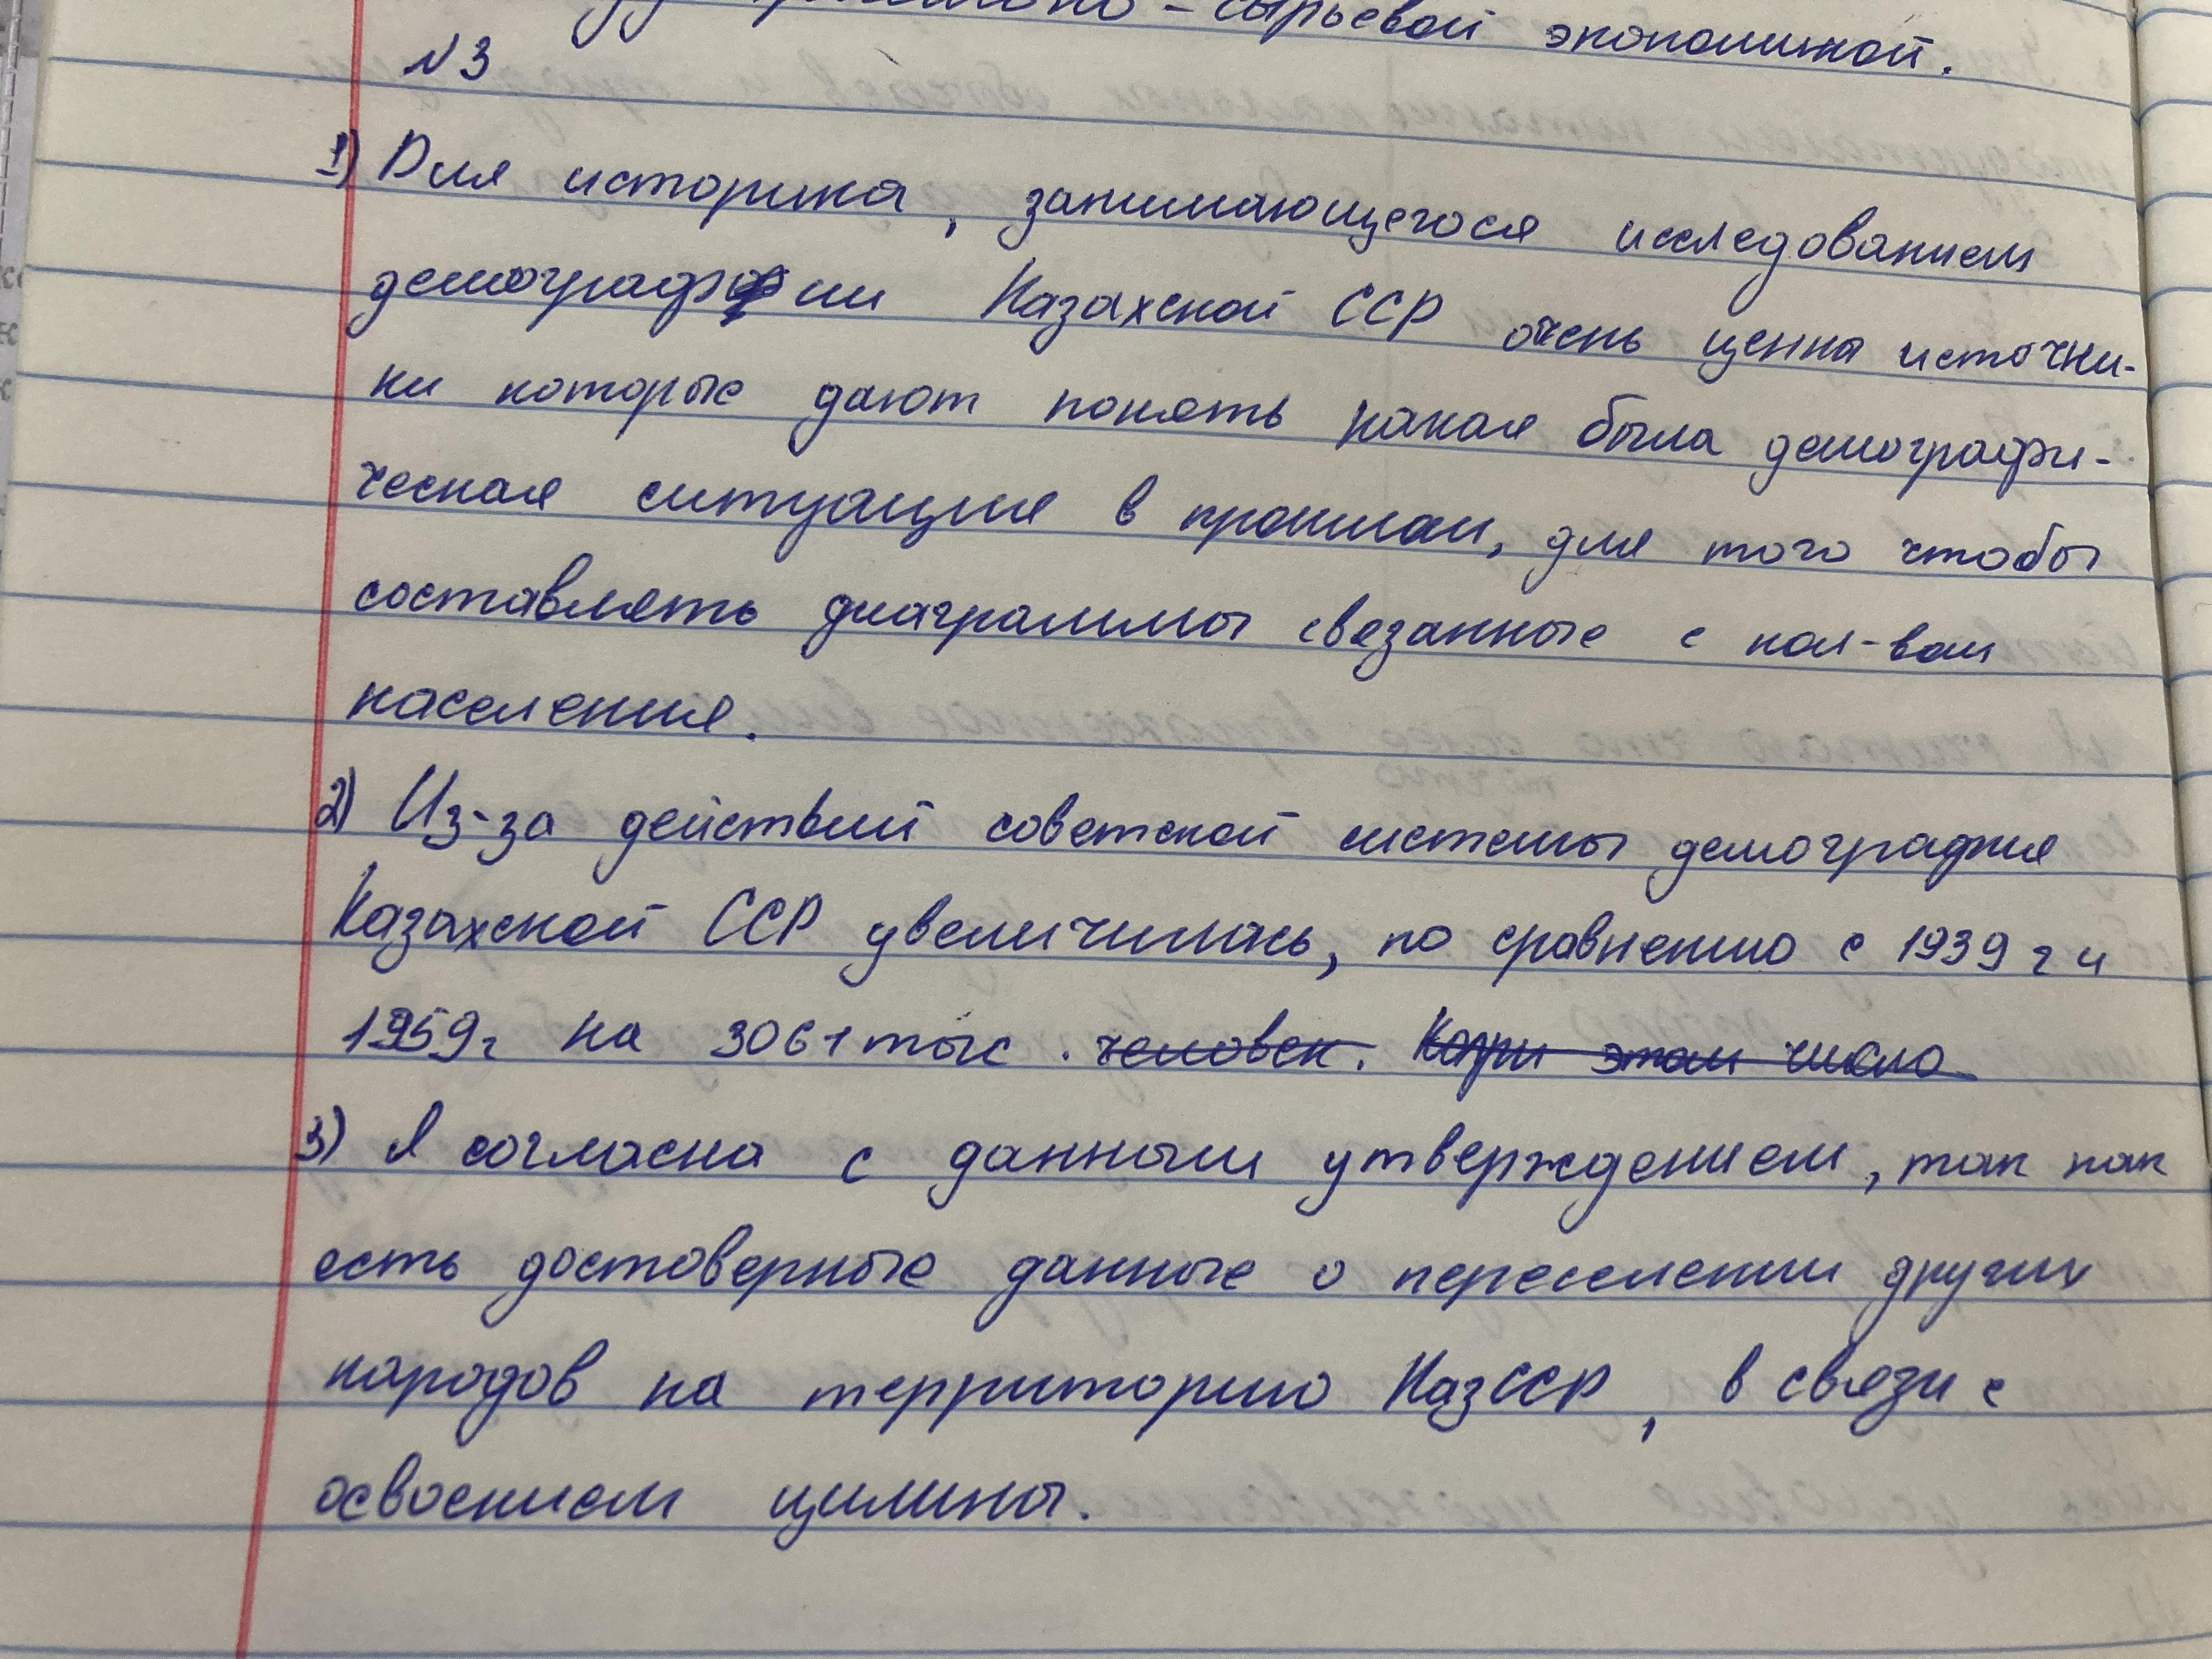 - сырьевой экономикой.
№3
1) Для историка, занимающегося исследованием
демографии Казахской ССР очень ценны источни-
ки которые дают понять какая была демографи-
ческая ситуация в прошлом, для того чтобы
составлять диаграммы связанные с кол-вом
населения.
2) Из-за действий советской системы демография
Казахской ССР увеличилась, по сравнению с 1939 г и
1959г на 3061 тыс. человек. этом число
3) Я согласна с данным утверждением, так как
есть достоверные данные о переселении других
народов на территорию КазССР, в связи с
освоением цилины.